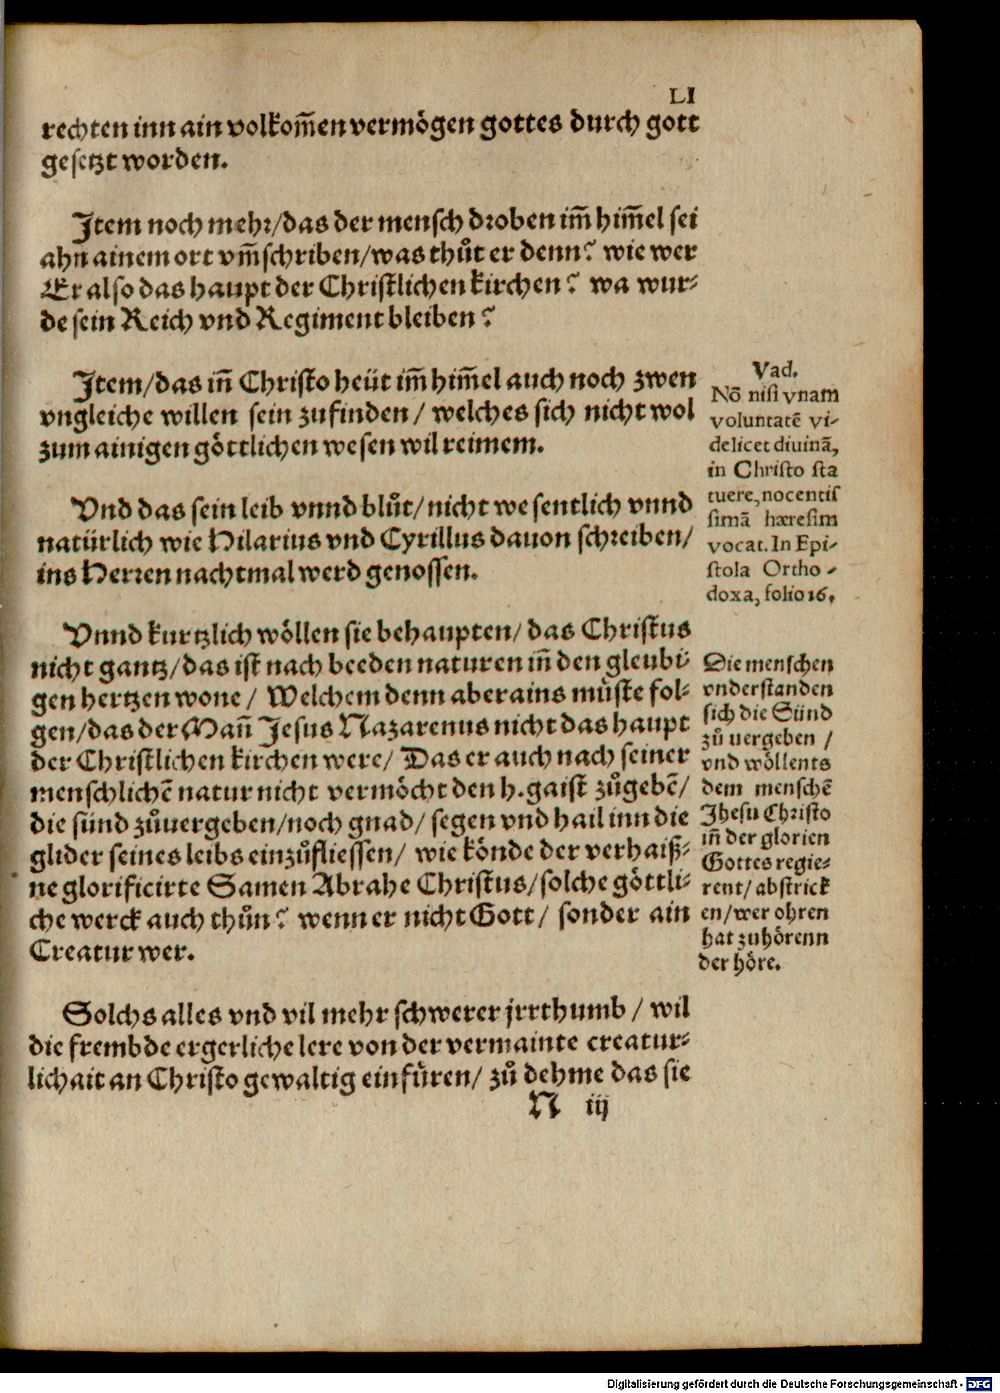 LI
rechten inn ain volkom̄en vermögen gottes durch gott
gesetzt worden.
Item noch mehr/das der mensch droben im̄ him̄el sei
ahn ainem ort vm̄schriben/was thůt er denn? wie wer
Er also das haupt der Christlichen kirchen? wa wur-
de sein Reich vnd Regiment bleiben?
Item/das in̄ Christo heüt im̄ him̄el auch noch zwen
vngleiche willen sein zufinden/ welches sich nicht wol
zum ainigen göttlichen wesen wil reimem.
Vnd das sein leib vnnd blůt/nicht wesentlich vnnd
natürlich wie Hilarius vnd Cyrillus dauon schreiben/
ins Herren nachtmal werd genossen.
Vad.
Nō nisi vnam
voluntatē vi-
delicet diuinā,
in Christo sta
tuere, nocentis
simā hæresim
vocat. In Epi-
stola Ortho-
doxa, folio 16.
Vnnd kurtzlich wöllen sie behaupten/ das Christus
nicht gantz/das ist nach beeden naturen in̄ den gleubi-
gen hertzen wone/ Welchem denn aber ains müste fol-
gen/das der Man̄ Jesus Nazarenus nicht das haupt
der Christlichen kirchen were/ Das er auch nach seiner
menschlichē natur nicht vermöcht den h. gaist zůgebē/
die sünd zůuergeben/noch gnad/ segen vnd hail inn die
glider seines leibs einzůfliessen/ wie könde der verhaiß-
ne glorificirte Samen Abrahe Christus/solche göttli-
che werck auch thůn? wenn er nicht Gott/ sonder ain
Creatur wer.
Die menschen
vnderstanden
sich die Sünd
zů uergeben /
vnd wöllents
dem menschē
Jhesu Christo
in̄ der glorien
Gottes regie-
rent/ abstrick
en/wer ohren
hat zuhörenn
der höre.
Solchs alles vnd vil mehr schwerer jrrthumb / wil
die frembde ergerliche lere von der vermainte creatur-
lichait an Christo gewaltig einfüren/ zů dehme das sie
N iij
Digitalisierung gefördert durch die Deutsche Forschungsgemeinschaft - DFG